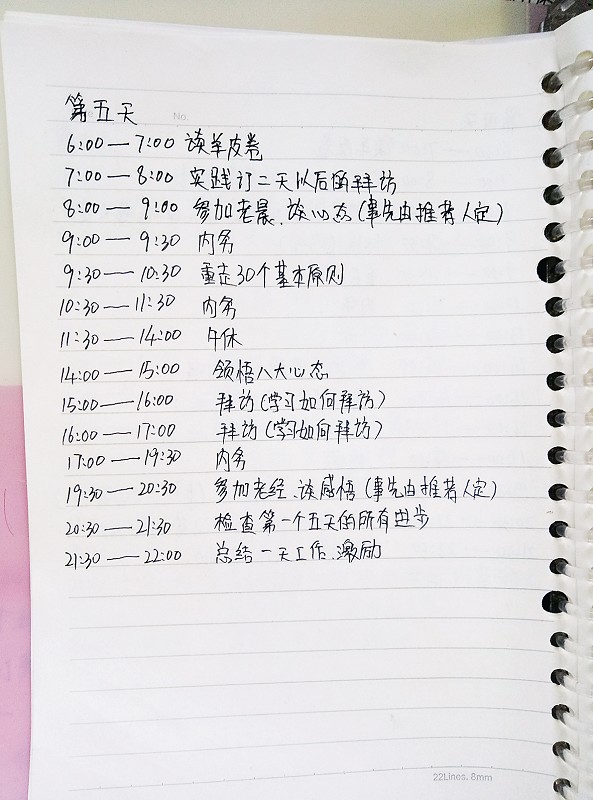 第五天
No.
6:00—7:00 读羊皮卷
7:00—8:00 实践订二天以后的拜访
8:00—9:00 参加老晨、谈心态(事先由推荐人定)
9:00—9:30 内务
9:30—10:30 重走30个基本原则
10:30—11:30 内务
11:30—14:00 午休
14:00—15:00 领悟八大心态
15:00—16:00 拜访(学习如何拜访)
16:00—17:00 拜访(学习如何拜访)
17:00—19:30 内务
19:30—20:30 参加老经、谈感悟(事先由推荐人定)
20:30—21:30 检查第一个五天的所有进步
21:30—22:00 总结一天工作、激励
22Lines. 8mm